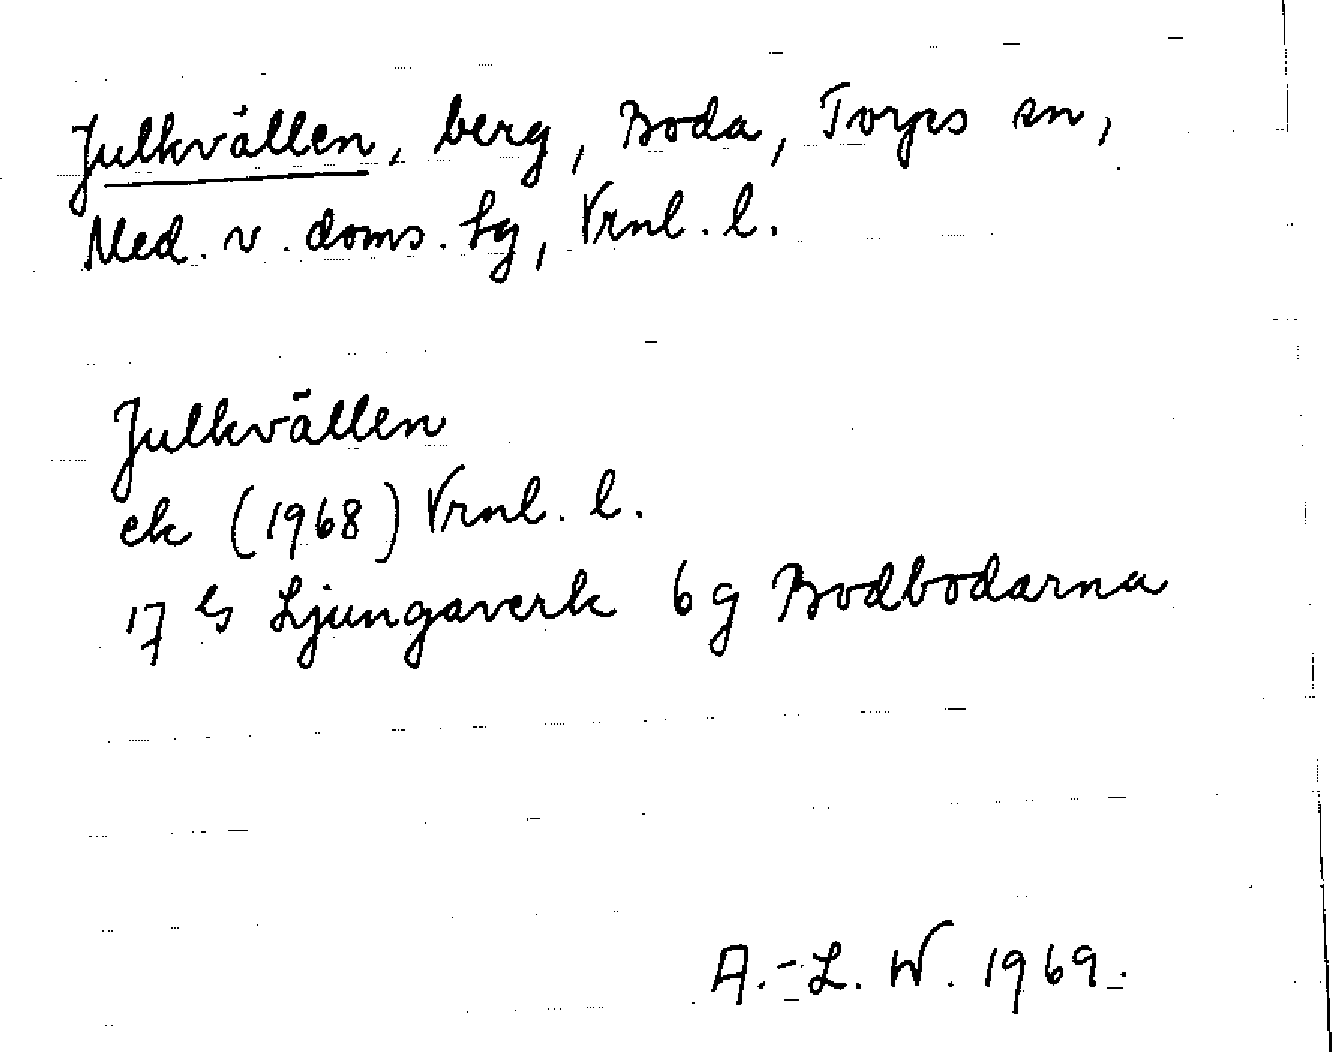 Julkvällen, berg, Boda, Torps sn,
Med. v. doms. tg, Vrnl. l.
Julkvällen
ek (1968) Vrnl. l.
17 G Ljungaverk 6 g Bodbodarna
A.-L. W. 1969.